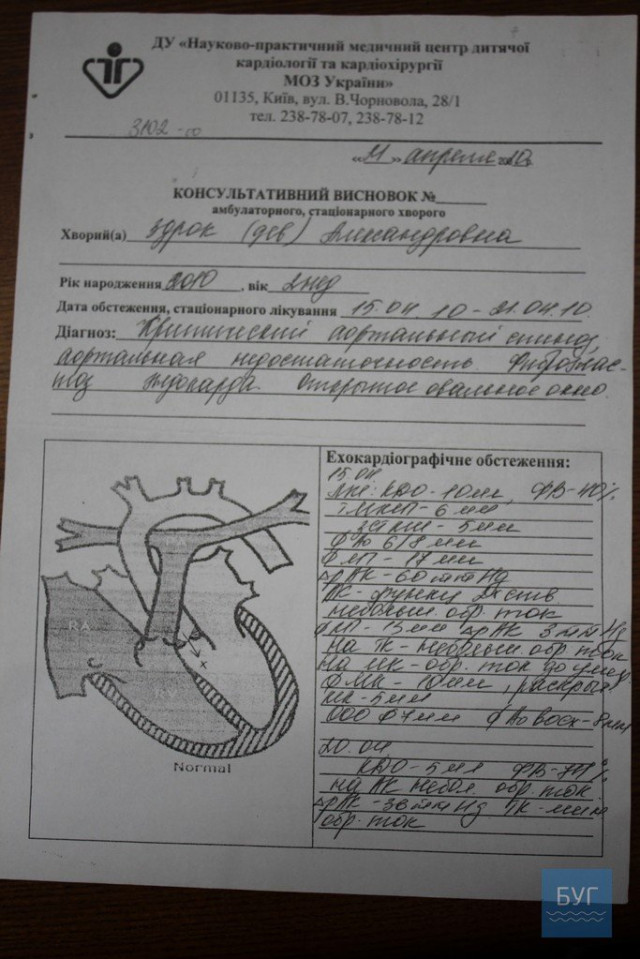 ДУ «Науково-практичний медичний центр дитячої
кардіології та кардіохірургії
МОЗ України»
01135, Київ, вул. В.Чорновола, 28/1
тел. 238-78-07, 238-78-12
3102
«21» апреля 2010
КОНСУЛЬТАТИВНИЙ ВИСНОВОК №
амбулаторного, стаціонарного хворого
Хворий(а) Здрок (дев) Александровна
Рік народження 2010, вік 2 нед
Дата обстеження, стаціонарного лікування 15.04 10 - 21.04.10.
Діагноз: Критический аортальный стеноз,
аортальная недостаточность. Фиброэлас-
тоз эндокарда. Открытое овальное окно.
Ехокардіографічне обстеження:
15.04
КДО - 10 мл, ФВ - 40%
ТМЖП - 6 мм
- 5 мм
ф Ао 6/8 мм
- 60 mm Hg
АК - функц
небольш. обр. ток
3 mm Hg
на ТК - небольш. обр. ток
на МК - обр. ток до умер
ф МК - 10 мм,
ООО ф 7 мм ф Ао восх - 8 мм
20.04.
КДО - 5 мл ФВ -
на АК небол. обр. ток
АК - 36 mm Hg ТК - мин
обр. ток
RA
RV
Normal
БУГ